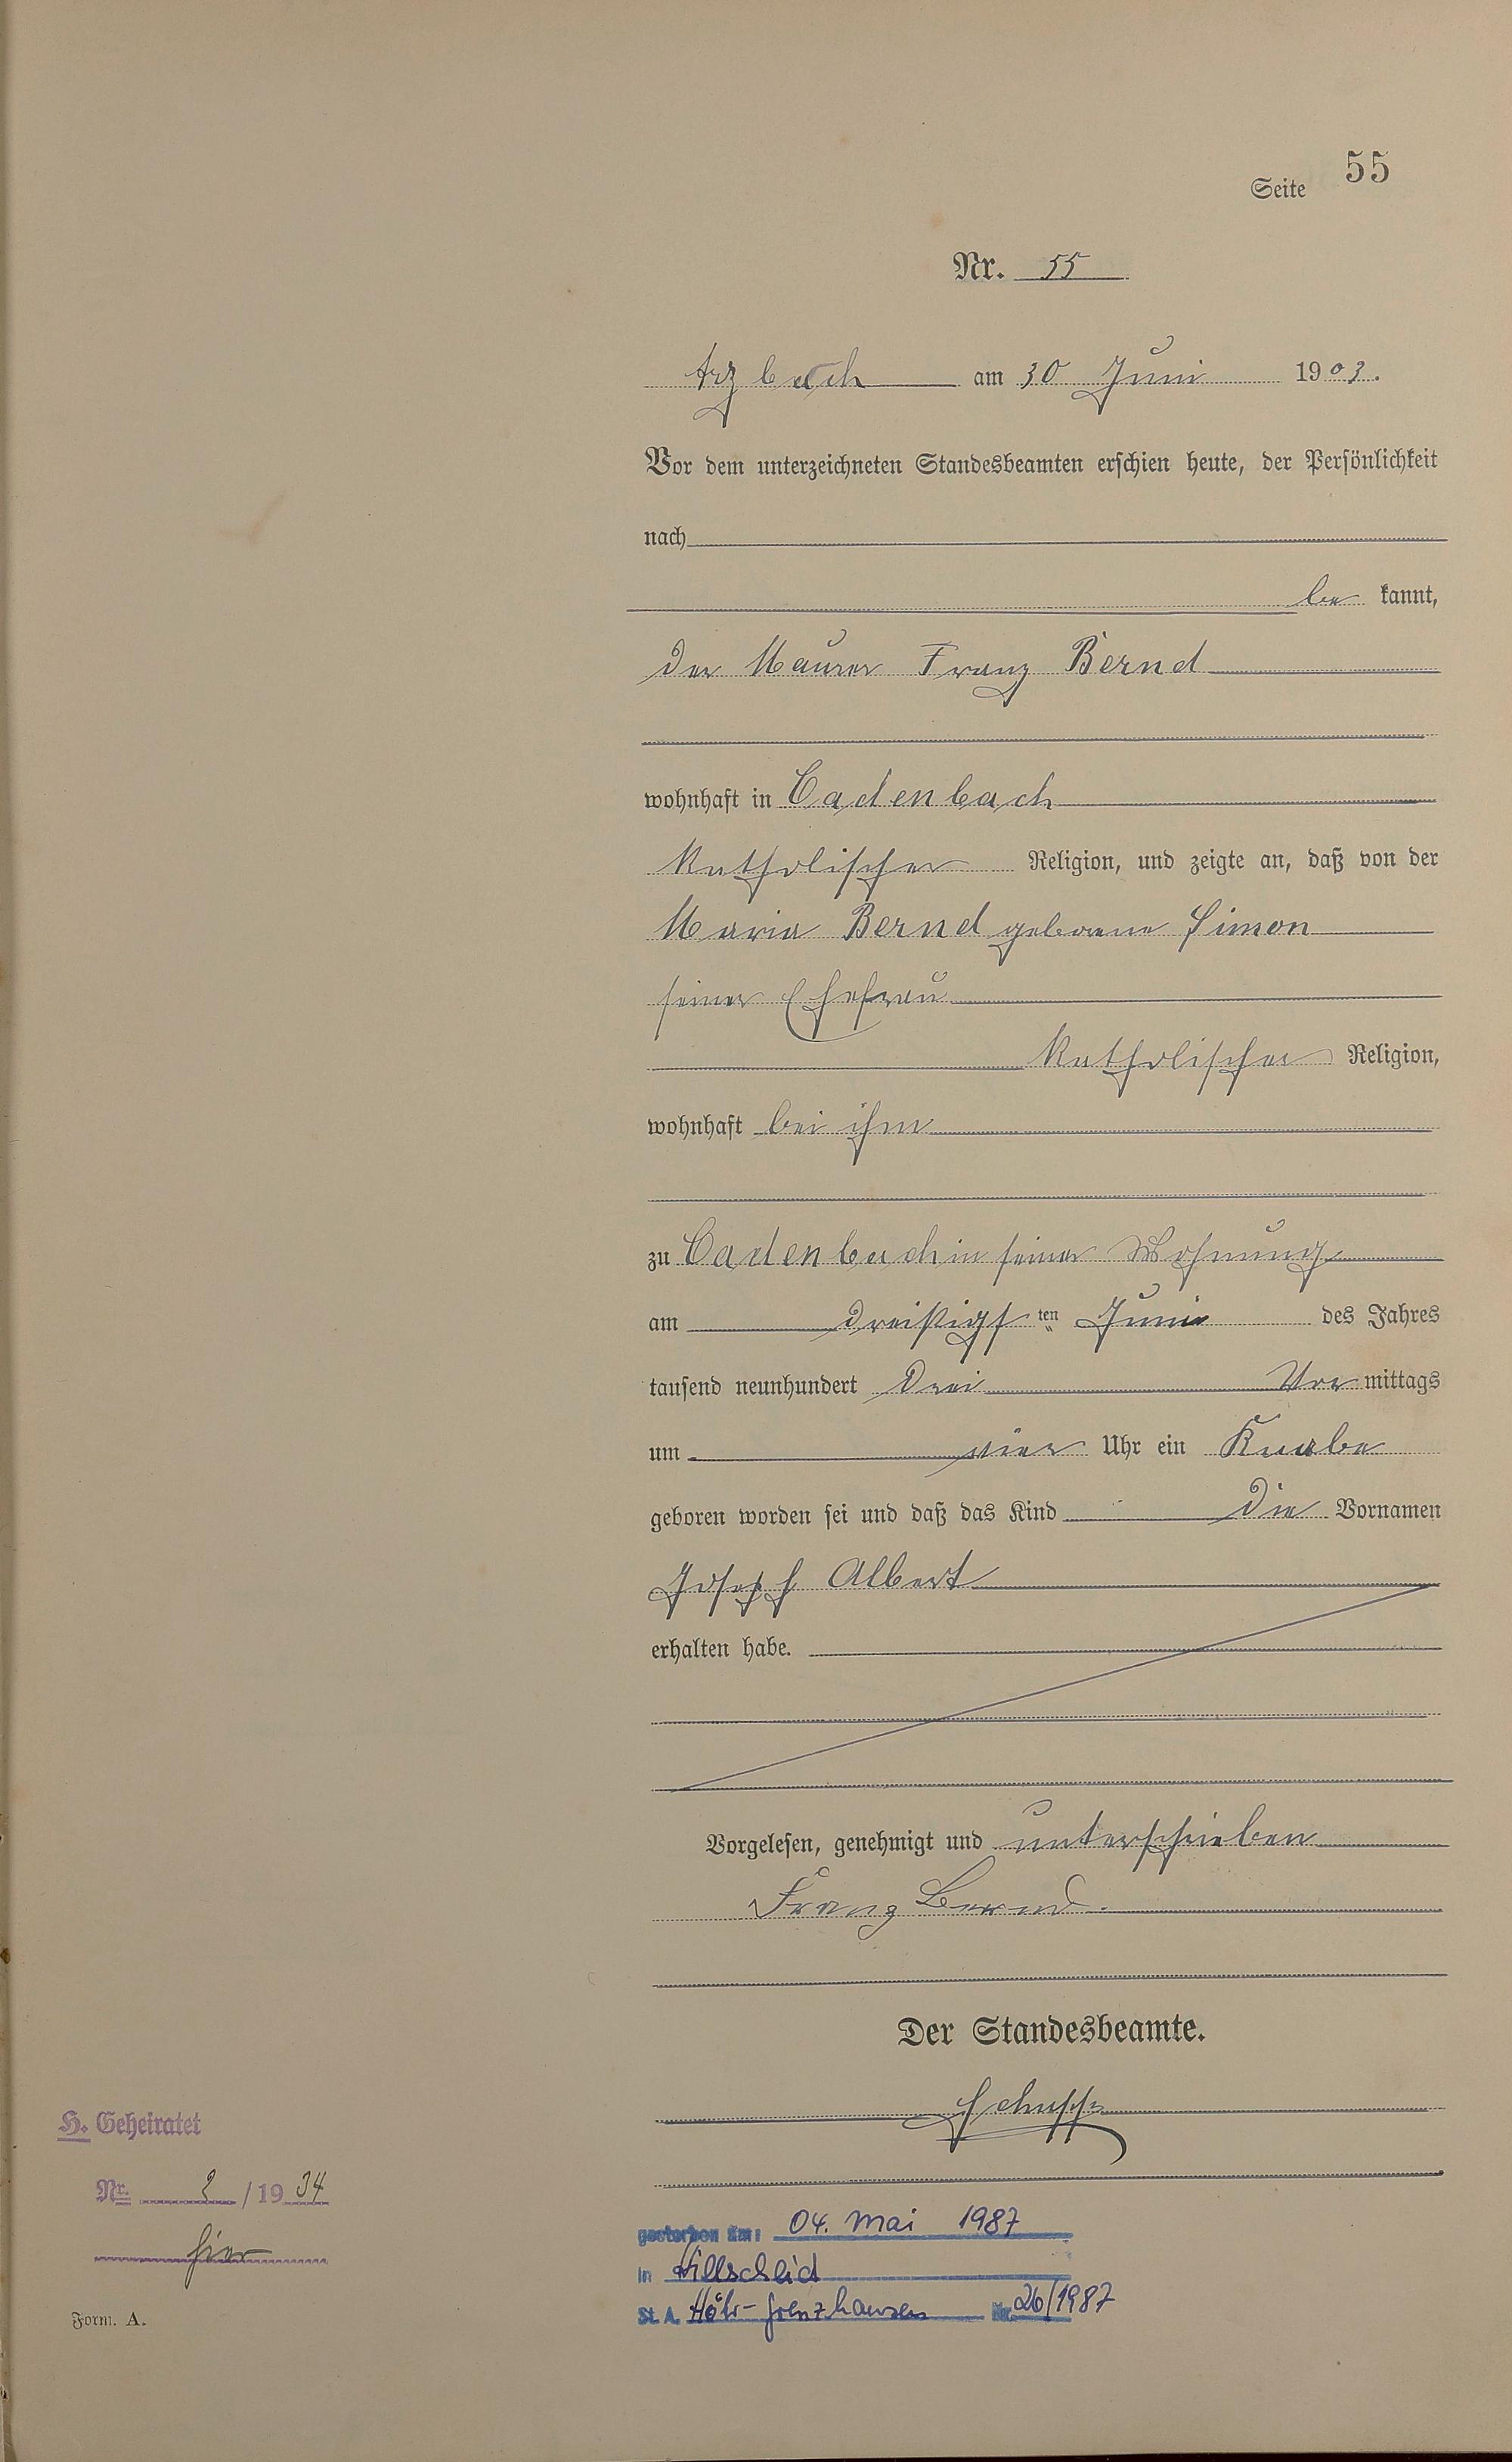 Seite 55
Nr. 55
Arzbach am 30 Juni 1903.
Vor dem unterzeichneten Standesbeamten erschien heute, der Persönlichkeit
nach
be kannt,
der Maurer Franz Bernd
wohnhaft in Cadenbach
katholischer Religion, und zeigte an, daß von der
Maria Bernd geborene Simon
seiner Ehefrau
katholischer Religion,
wohnhaft bei ihm
zu Cadenbach in seiner Wohnung
am dreißigsten Juni des Jahres
tausend neunhundert drei Vor mittags
um vier Uhr ein Knabe
geboren worden sei und daß das Kind die Vornamen
Joseph Albert
erhalten habe.
Vorgelesen, genehmigt und unterschrieben
Franz Bernd.
Der Standesbeamte.
Schupp
H. Geheiratet
Nr. 2 / 19 34
hier
gestorben am: 04. Mai 1987
in Hillscheid
St. A. Höhr-Grenzhausen Nr. 26/1987
Form. A.